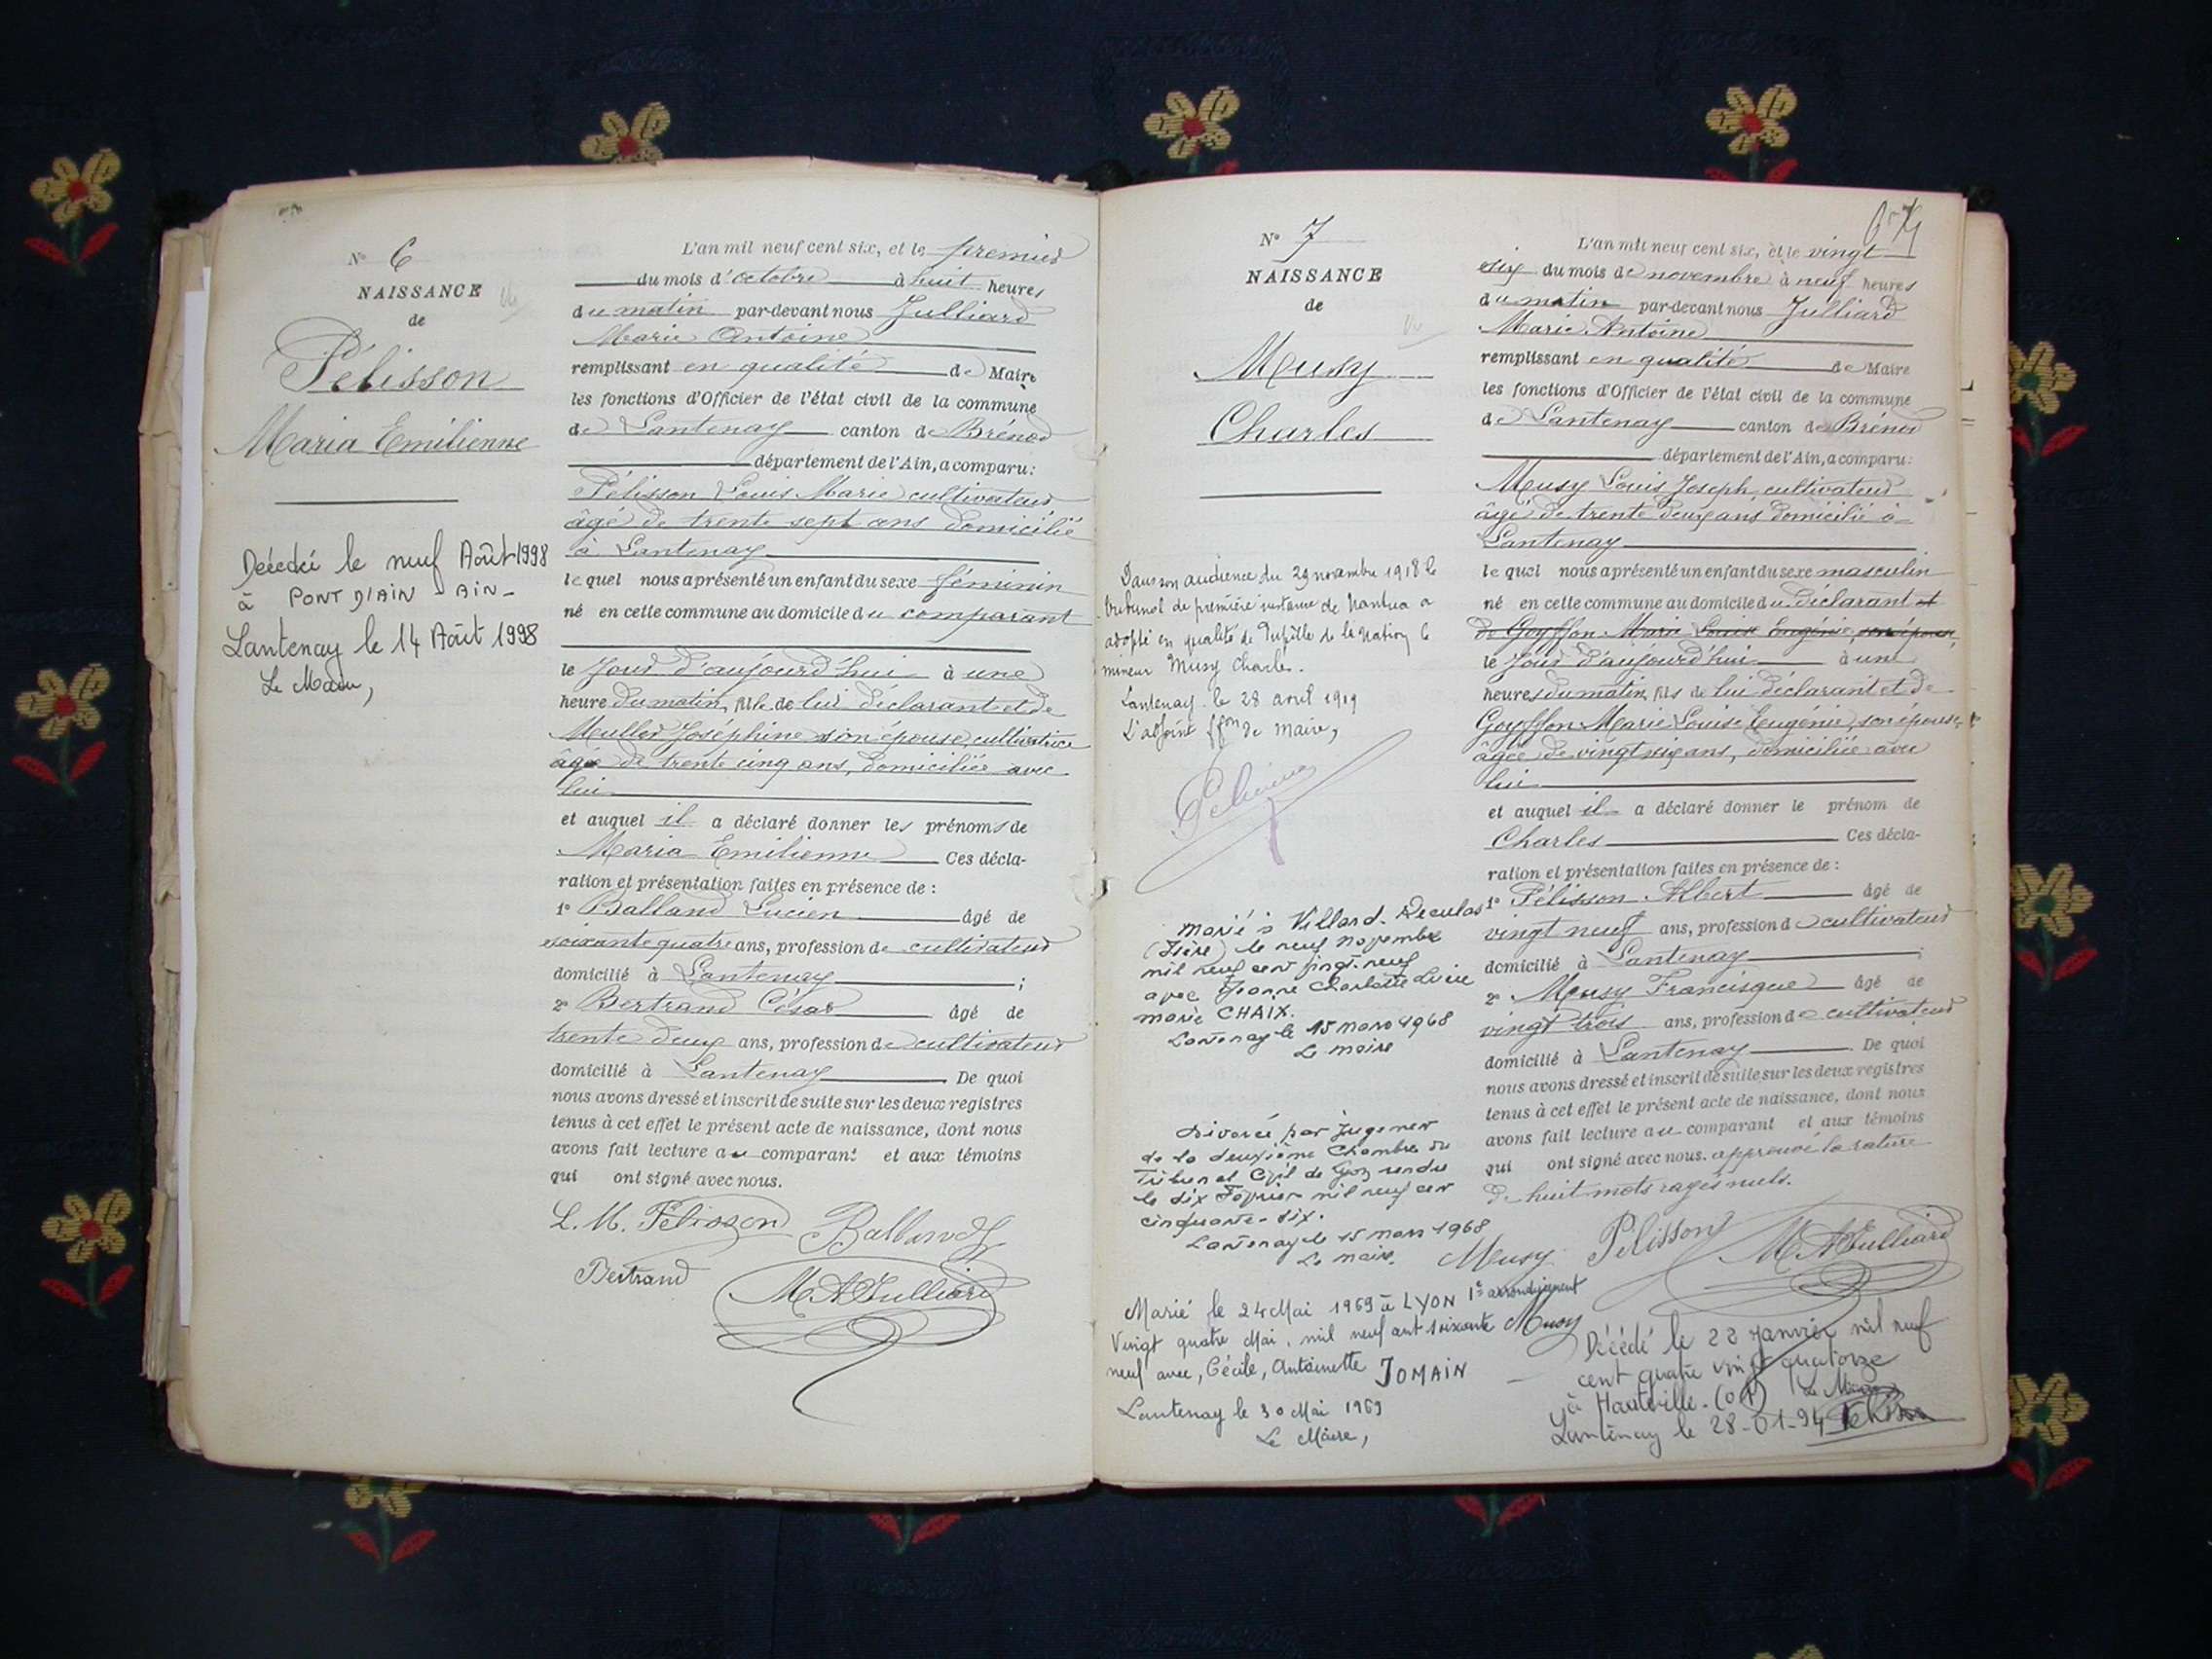 N° 6
NAISSANCE
de
Pélisson
Maria Emilienne
Décédée le neuf Août 1998
à PONT D'AIN - AIN -
Lantenay le 14 Août 1998
Le Maire,
L'an mil neuf cent six, et le premier
du mois d'octobre à huit heures
du matin par-devant nous Julliard
Marie Antoine
remplissant en qualité de Maire
les fonctions d'Officier de l'état civil de la commune
de Lantenay canton de Brénod
département de l'Ain, a comparu :
Pélisson Louis Marie cultivateur
âgé de trente sept ans domicilié
à Lantenay
lequel nous a présenté un enfant du sexe féminin
né en cette commune au domicile du comparant
le jour d'aujourd'hui à une
heure du matin, fille de lui déclarant et de
Muller Joséphine son épouse, cultivatrice
âgée de trente cinq ans, domiciliée avec
lui
et auquel il a déclaré donner les prénoms de
Maria Emilienne Ces décla-
ration et présentation faites en présence de :
1° Balland Lucien âgé de
soixante quatre ans, profession de cultivateur
domicilié à Lantenay ;
2° Bertrand César âgé de
trente deux ans, profession de cultivateur
domicilié à Lantenay . De quoi
nous avons dressé et inscrit de suite sur les deux registres
tenus à cet effet le présent acte de naissance, dont nous
avons fait lecture au comparant et aux témoins
qui ont signé avec nous.
L. M. Pelisson Balland
Bertrand
M A Julliard
N° 7
NAISSANCE
de
Musy
Charles
Dans son audience du 29 novembre 1918 le
tribunal de première instance de Nantua a
adopté en qualité de Pupille de la Nation le
mineur Musy Charles.
Lantenay le 28 avril 1919
L'adjoint ffon de Maire,
marié à Villard. Reculas
(Isère) le neuf novembre
mil neuf cent vingt-neuf
avec Jeanne Charlotte Lucie
marie CHAIX.
Lantenay le 15 mars 1968
Le maire
Divorcé par Jugement
de la deuxième Chambre du
Tribunal Civil de Lyon rendu
le dix Février mil neuf cent
cinquante-six.
Lantenay le 15 mars 1968
Le maire.
Marié le 24 Mai 1969 à LYON 1e arrondissement
Vingt quatre Mai, mil neuf cent soixante
neuf avec, Cécile, Antoinette JOMAIN
Lantenay le 30 Mai 1969
Le Maire,
L'an mil neuf cent six, et le vingt
six du mois de novembre à neuf heures
du matin par-devant nous Julliard
Marie Antoine
remplissant en qualité de Maire
les fonctions d'Officier de l'état civil de la commune
de Lantenay canton de Brénod
département de l'Ain, a comparu :
Musy Louis Joseph, cultivateur
âgé de trente deux ans domicilié à
Lantenay
lequel nous a présenté un enfant du sexe masculin
né en cette commune au domicile du déclarant et
de Goyffon Marie Louise Eugénie, son épouse
le jour d'aujourd'hui à une
heures du matin, fils de lui déclarant et de
Goyffon Marie Louise Eugénie, son épouse,
âgée de vingt six ans, domiciliée avec
lui
et auquel il a déclaré donner le prénom de
Charles Ces décla-
ration et présentation faites en présence de :
1° Pélisson Albert âgé de
vingt neuf ans, profession de cultivateur
domicilié à Lantenay ;
2° Musy Francisque âgé de
vingt trois ans, profession de cultivateur
domicilié à Lantenay . De quoi
nous avons dressé et inscrit de suite sur les deux registres
tenus à cet effet le présent acte de naissance, dont nous
avons fait lecture au comparant et aux témoins
qui ont signé avec nous. approuvé la rature
de huit mots rayés nuls.
Musy Pelisson M A Julliard
Musy
Décédé le 22 Janvier mil neuf
cent quatre vingt quatorze
à Hauteville. (01) Le Maire
Lantenay le 28-01-94